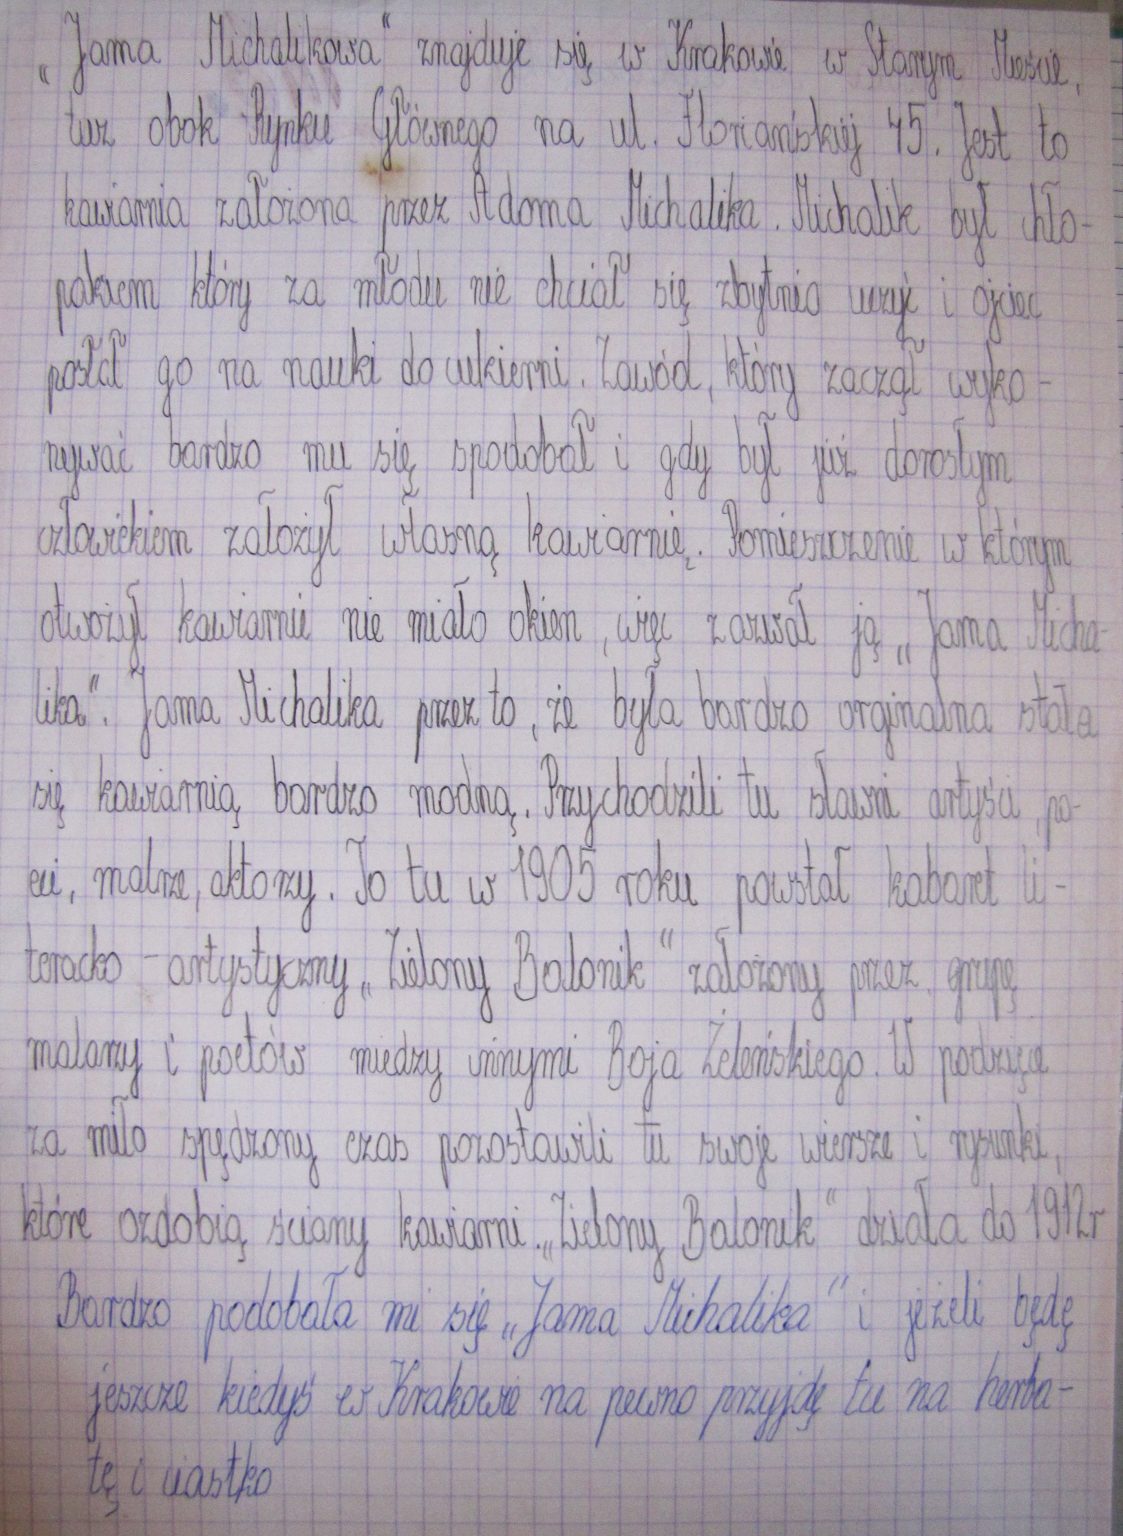 „Jama Michalikowa" znajduje się w Krakowie w Starym Mieście,
tuż obok Rynku Głównego na ul. Floriańskiej 45. Jest to
kawiarnia założona przez Adama Michalika. Michalik był chło-
pakiem który za młodu nie chciał się zbytnio uczyć i ojciec
posłał go na nauki do cukierni. Zawód, który zaczął wyko-
nywać bardzo mu się spodobał i gdy był już dorosłym
człowiekiem założył własną kawiarnię. Pomieszczenie w którym
otwożył kawiarnie nie miało okien, więc zazwał ją „Jama Micha-
lika". Jama Michalika przez to, że była bardzo orginalna stała
się kawiarnią bardzo modną. Przychodzili tu sławni artyści, po-
eci, malrze, aktorzy. To tu w 1905 roku powstał kabaret li-
teracko - artystyczny „Zielony Balonik" założony przez grupę
malarzy i poetów miedzy innymi Boja Żeleńskiego. W podzięce
za miło spędzony czas pozostawili tu swoje wiersze i rysunki,
które ozdobią ściany kawiarni. „Zielony Balonik" działa do 1912r
Bardzo podobała mi się „Jama Michalika" i jeżeli będę
jeszcze kiedyś w Krakowie na pewno przyjdę tu na herba-
tę i ciastko